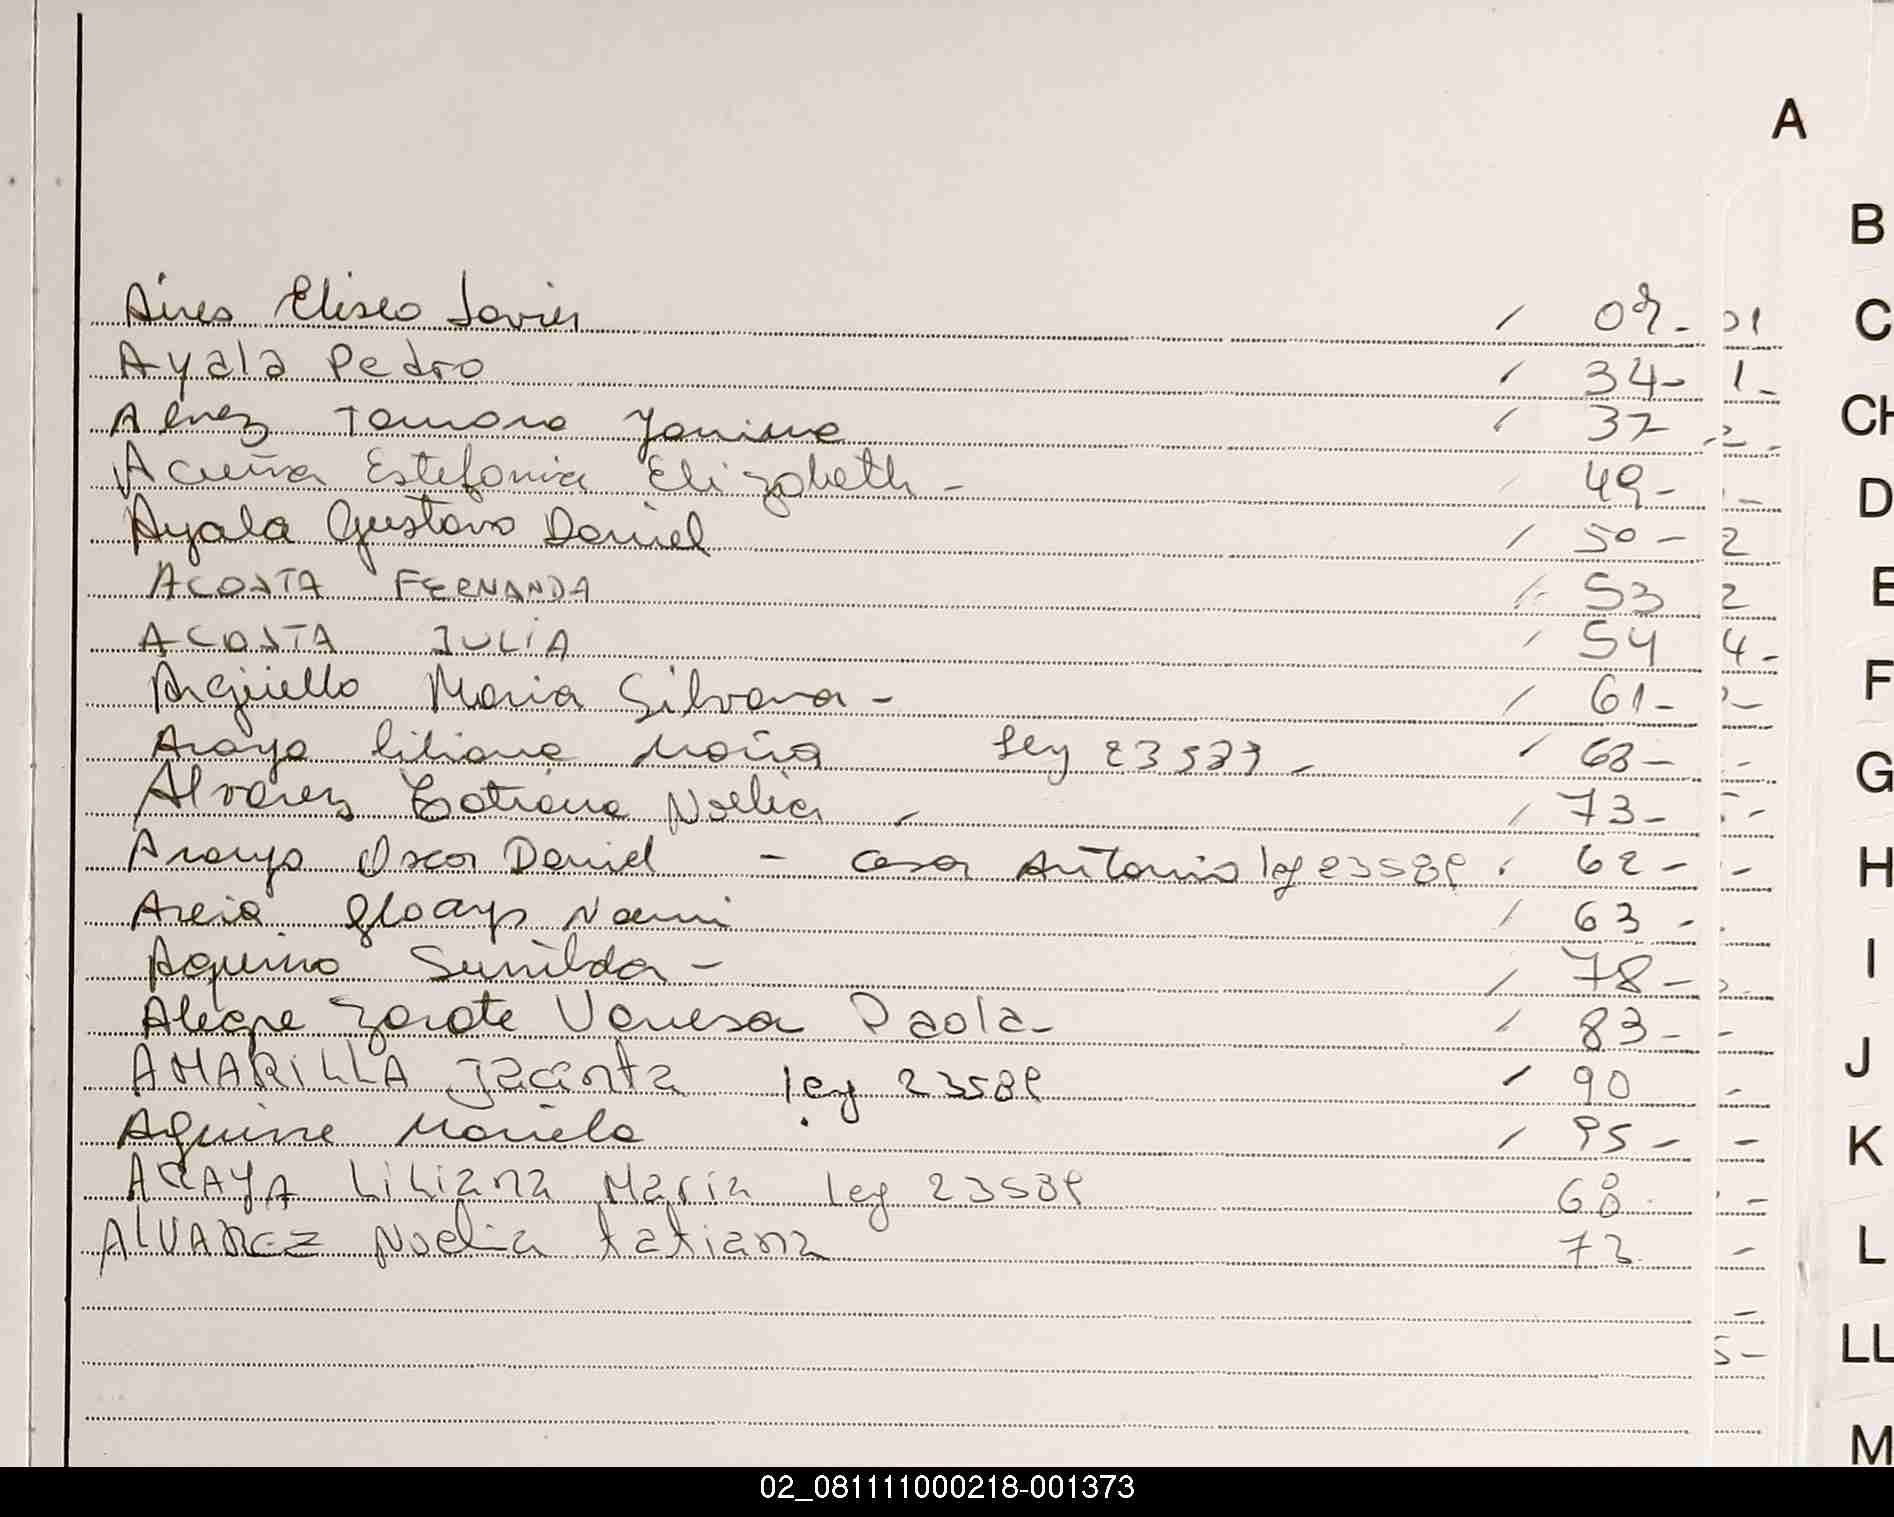 A
B
C
CH
D
E
F
G
H
I
J
K
L
LL
M
Aires Eliseo Javier / 09-
Ayala Pedro / 34-
Alvez Tamara Yanina / 37
Acuña Estefania Elizabeth - 49-
Ayala Gustavo Daniel / 50-
ACOSTA FERNANDA / 53
ACOSTA JULIA / 54
Argüello Maria Silvana - / 61-
Araya Liliana Maria Ley 23539 - / 68-
Alvarez Tatiana Noelia - / 73-
Araujo Oscar Daniel - Cesar Antonio ley 23589 / 62-
Areia Gladys Noemi / 63 -
Aquino Sunilda - / 78-
Alegre Zarate Vanesa Paola- / 83-
AMARILLA Jacinta ley 23589 / 90
Aguirre Mariela / 95-
ARAYA Liliana Maria ley 23589 68
ALVAREZ Noelia tatiana 73
02_081111000218-001373